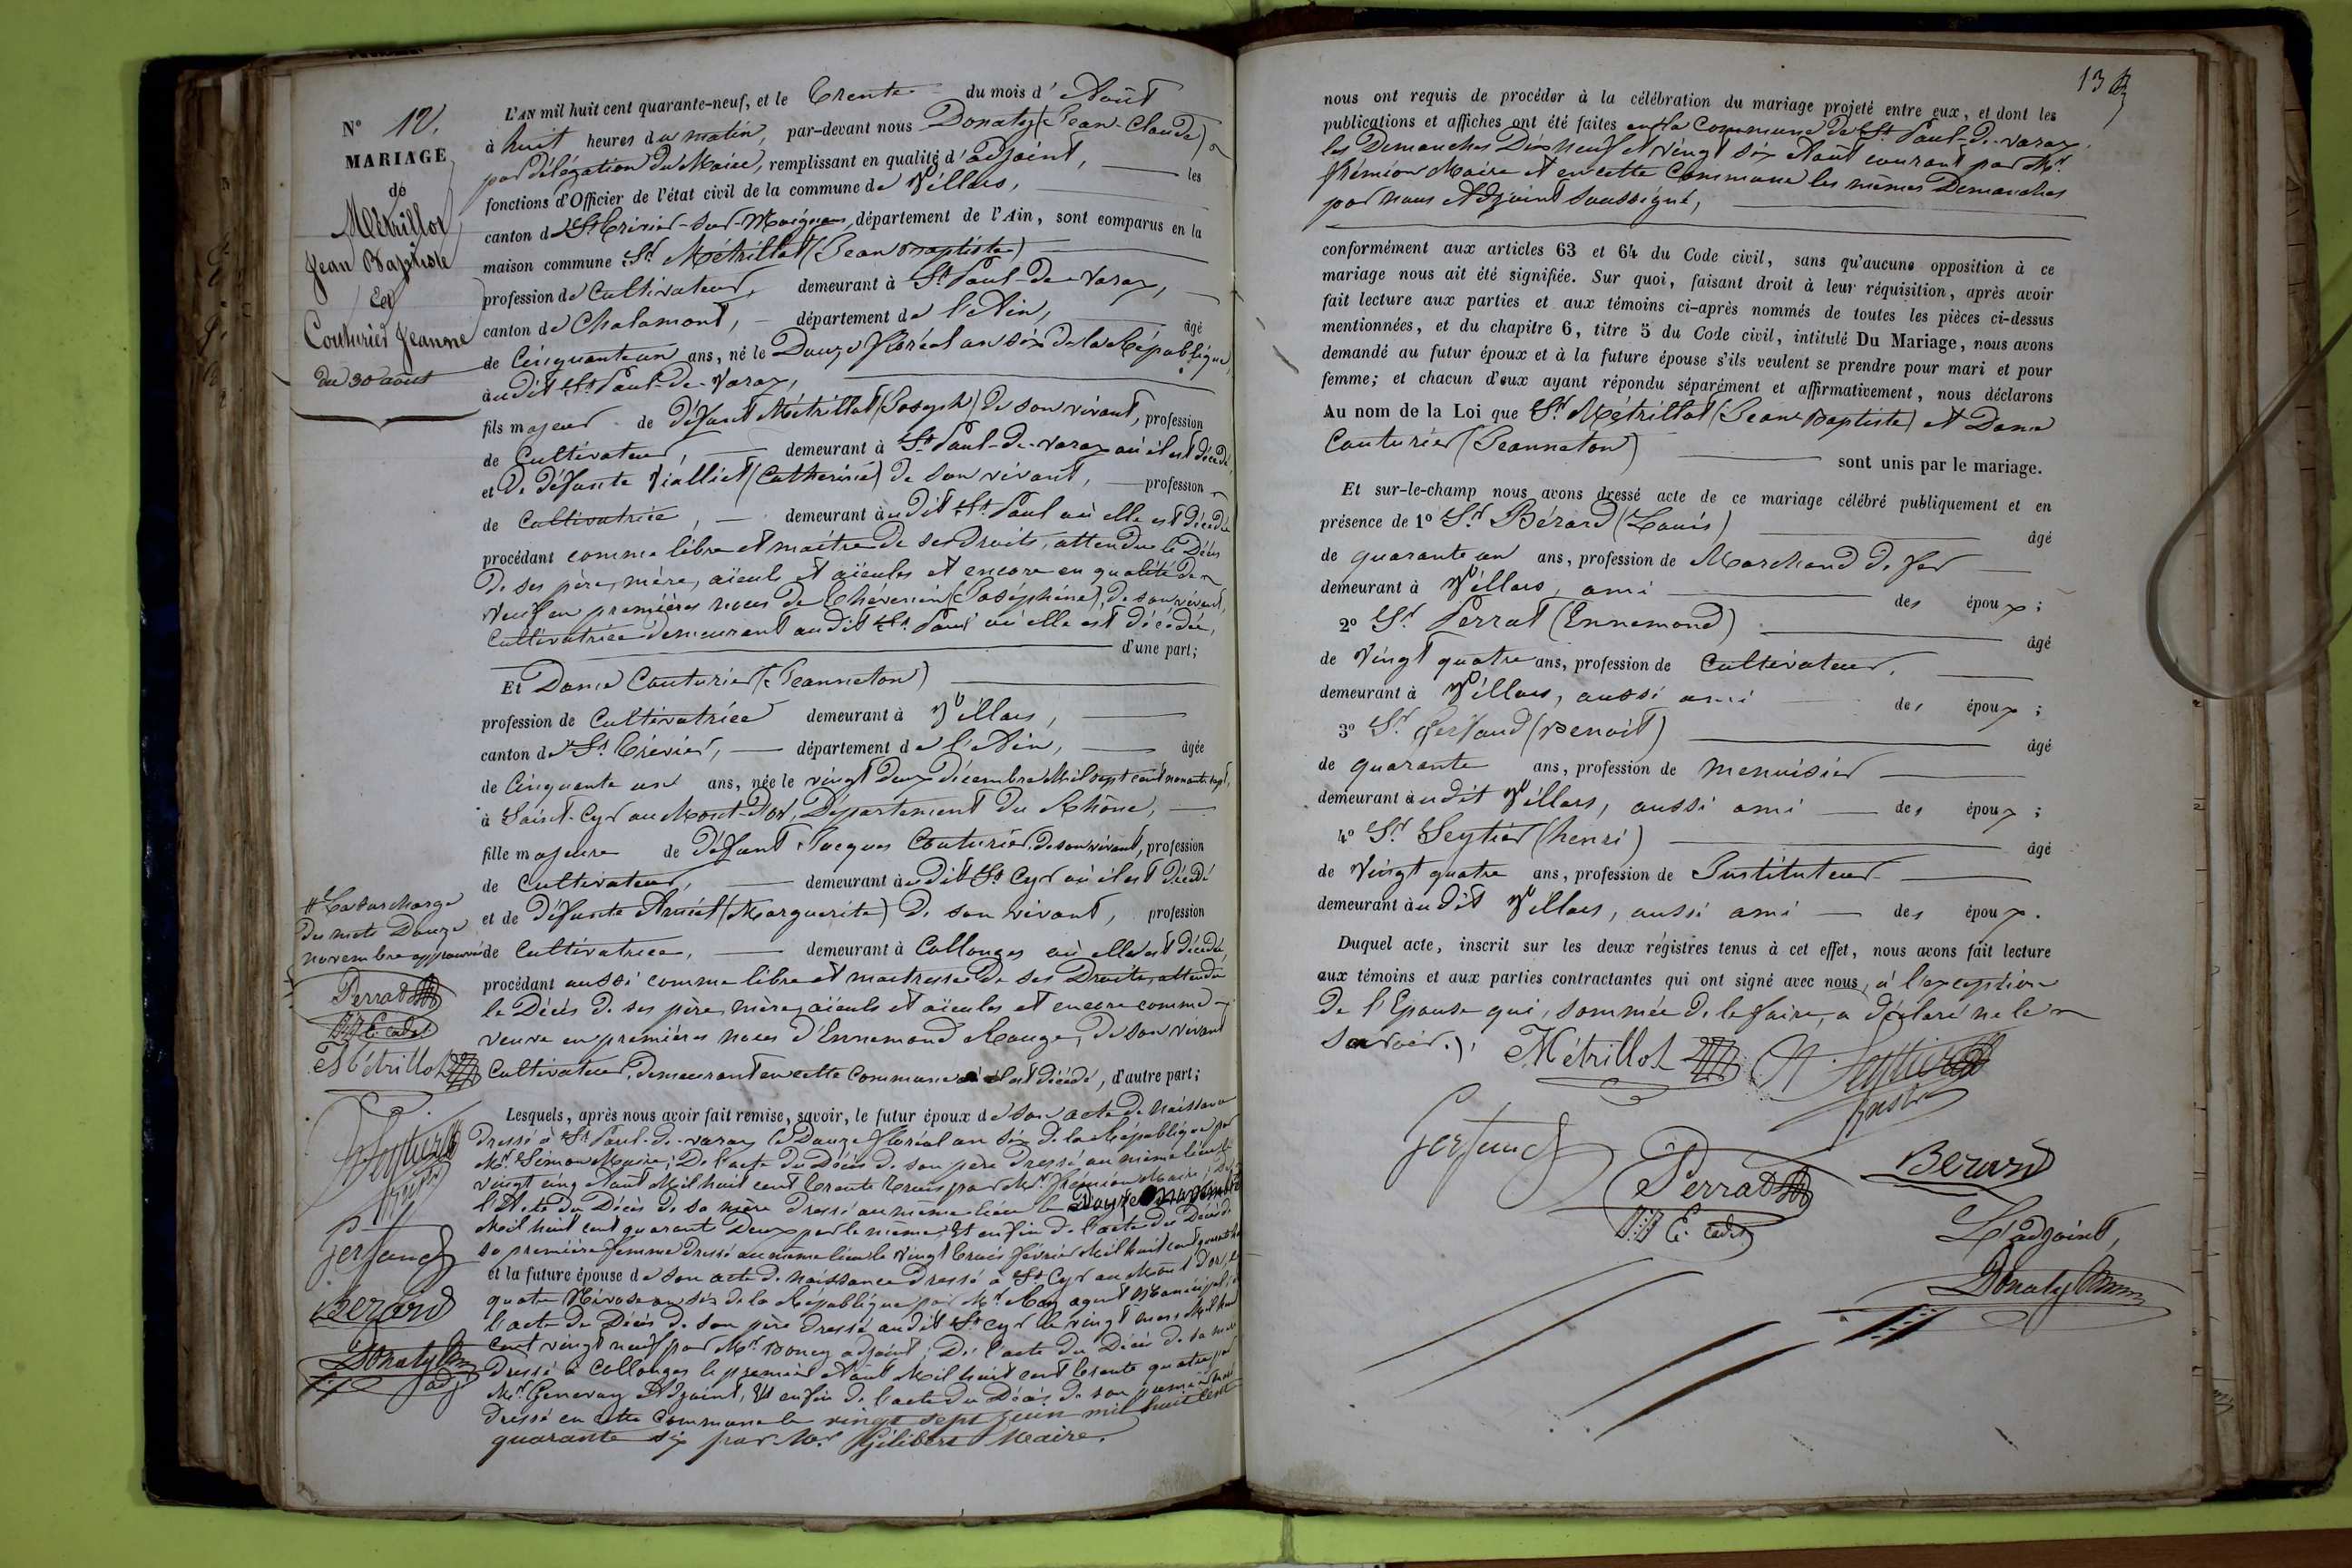 N° 12.
MARIAGE
de
Métrillot
Jean Baptiste
Et
Couturier Jeanne
du 30 août
L'AN mil huit cent quarante-neuf, et le Trente du mois d'Août
à huit heures du matin, par-devant nous Donaty (Jean-Claude)
par délégation du Maire, remplissant en qualité d'adjoint, les
fonctions d'Officier de l'état civil de la commune de Villars,
canton de St Trivier-sur-Moignans, département de l'Ain, sont comparus en la
maison commune Sr Métrillot (Jean Baptiste)
profession de Cultivateur, demeurant à St Paul-de-Varax,
canton de Chalamont, département de l'Ain, âgé
de Cinquante un ans, né le Douze floréal an six de la République,
audit St Paul-de-Varax,
fils majeur de défunt Métrillot (Joseph) de son vivant, profession
de Cultivateur, demeurant à St Paul-de-Varax où il est décédé,
et de défunte Vialliet (Catherine) de son vivant, profession
de Cultivatrice, demeurant audit St Paul où elle est décédée
procédant comme libre et maître de ses droits, attendu le Décès
de ses père, mère, aïeuls et aïeules et encore en qualité de
Veuf en premières noces de (Joséphine), de son vivant,
Cultivatrice demeurant audit St Paul où elle est décédée,
d'une part;
Et Dame Couturier (Jeanneton)
profession de Cultivatrice demeurant à Villars,
canton de St Trivier, département de l'Ain, âgée
de Cinquante un ans, née le vingt deux décembre Mil sept cent nonante sept,
à Saint-Cyr au Mont-d'Or, Département du Rhône,
fille majeure de défunt Jacques Couturier, de son vivant, profession
de Cultivateur, demeurant audit St Cyr où il est décédé
et de défunte (Marguerite) de son vivant, profession
de Cultivatrice, demeurant à Collonges où elle est décédée,
procédant aussi comme libre et maitresse de ses Droits, attendu
le Décès de ses père, mère, aïeuls et aïeules et encore comme
veuve en premières noces d'Ennemond Rouge, de son vivant
Cultivateur, demeurant en cette Commune où il est décédé, d'autre part;
Lesquels, après nous avoir fait remise, savoir, le futur époux de son acte de naissance
dressé à St Paul-de-varax le Douze floréal an six de la République par
Mr Simon Maire; De l'acte du Décès de son père dressé au même lieu le
vingt cinq Août Mil huit cent trente trois par Mr Frémion Maire; de
l'Acte du Décès de sa mère dressé au même lieu le Douze novembre
Mil huit cent quarante Deux par le même; Et enfin de l'acte du Décès de
sa première femme dressé au même lieu le vingt trois février Mil huit cent
et la future épouse de son acte de naissance dressé à St Cyr au Mont d'or, le
quatre Nivose an six de la République par Mr Ray agent Municipal; de
l'acte de Décès de son père dressé audit St Cyr le vingt mars Mil huit
cent vingt neuf par Mr Poncy adjoint; De l'acte du Décès de sa mère
dressé à Collonges le premier Août Mil huit cent trente quatre par
Mr Genevay Adjoint, Et enfin de l'acte du Décès de son premier mari
dressé en cette Commune le vingt sept juin mil huit cent
quarante six par Mr Gilibert Maire.
# La surcharge
des mots Douze
novembre approuvée
Perrat
E. cadet
Métrillot
Seytier
Gerfaud
Bérard
Donaty
adjt
13
nous ont requis de procéder à la célébration du mariage projeté entre eux, et dont les
publications et affiches ont été faites en la Commune de St Paul-de-varax
les Dimanches Dix neuf et vingt six Août courant par Mr
frémion Maire et en cette Commune les mêmes Dimanches
par nous Adjoint soussigné,
conformément aux articles 63 et 64 du Code civil, sans qu'aucune opposition à ce
mariage nous ait été signifiée. Sur quoi, faisant droit à leur réquisition, après avoir
fait lecture aux parties et aux témoins ci-après nommés de toutes les pièces ci-dessus
mentionnées, et du chapitre 6, titre 5 du Code civil, intitulé Du Mariage, nous avons
demandé au futur époux et à la future épouse s'ils veulent se prendre pour mari et pour
femme; et chacun d'eux ayant répondu séparément et affirmativement, nous déclarons
Au nom de la Loi que Sr Métrillot (Jean-Baptiste) et Dame
Couturier (Jeanneton)
sont unis par le mariage.
Et sur-le-champ nous avons dressé acte de ce mariage célébré publiquement et en
présence de 1° Sr Bérard (Louis) âgé
de quarante un ans, profession de Marchand de fer
demeurant à Villars, ami des époux;
2° Sr Perrat (Ennemond) âgé
de Vingt quatre ans, profession de Cultivateur,
demeurant à Villars, aussi ami des époux;
3° Sr Gerfaud (Benoit) âgé
de quarante ans, profession de menuisier
demeurant audit Villars, aussi ami des époux;
4° Sr Seytier (henri) âgé
de Vingt quatre ans, profession de Instituteur
demeurant audit Villars, aussi ami des époux.
Duquel acte, inscrit sur les deux régistres tenus à cet effet, nous avons fait lecture
aux témoins et aux parties contractantes qui ont signé avec nous, à l'exception
de l'Epouse qui, sommée de le faire, a déclaré ne le
savoir.
Métrillot
H. Seytier
Gerfaud
Perrat
E. Cadet
Berard
L'adjoint,
Donaty